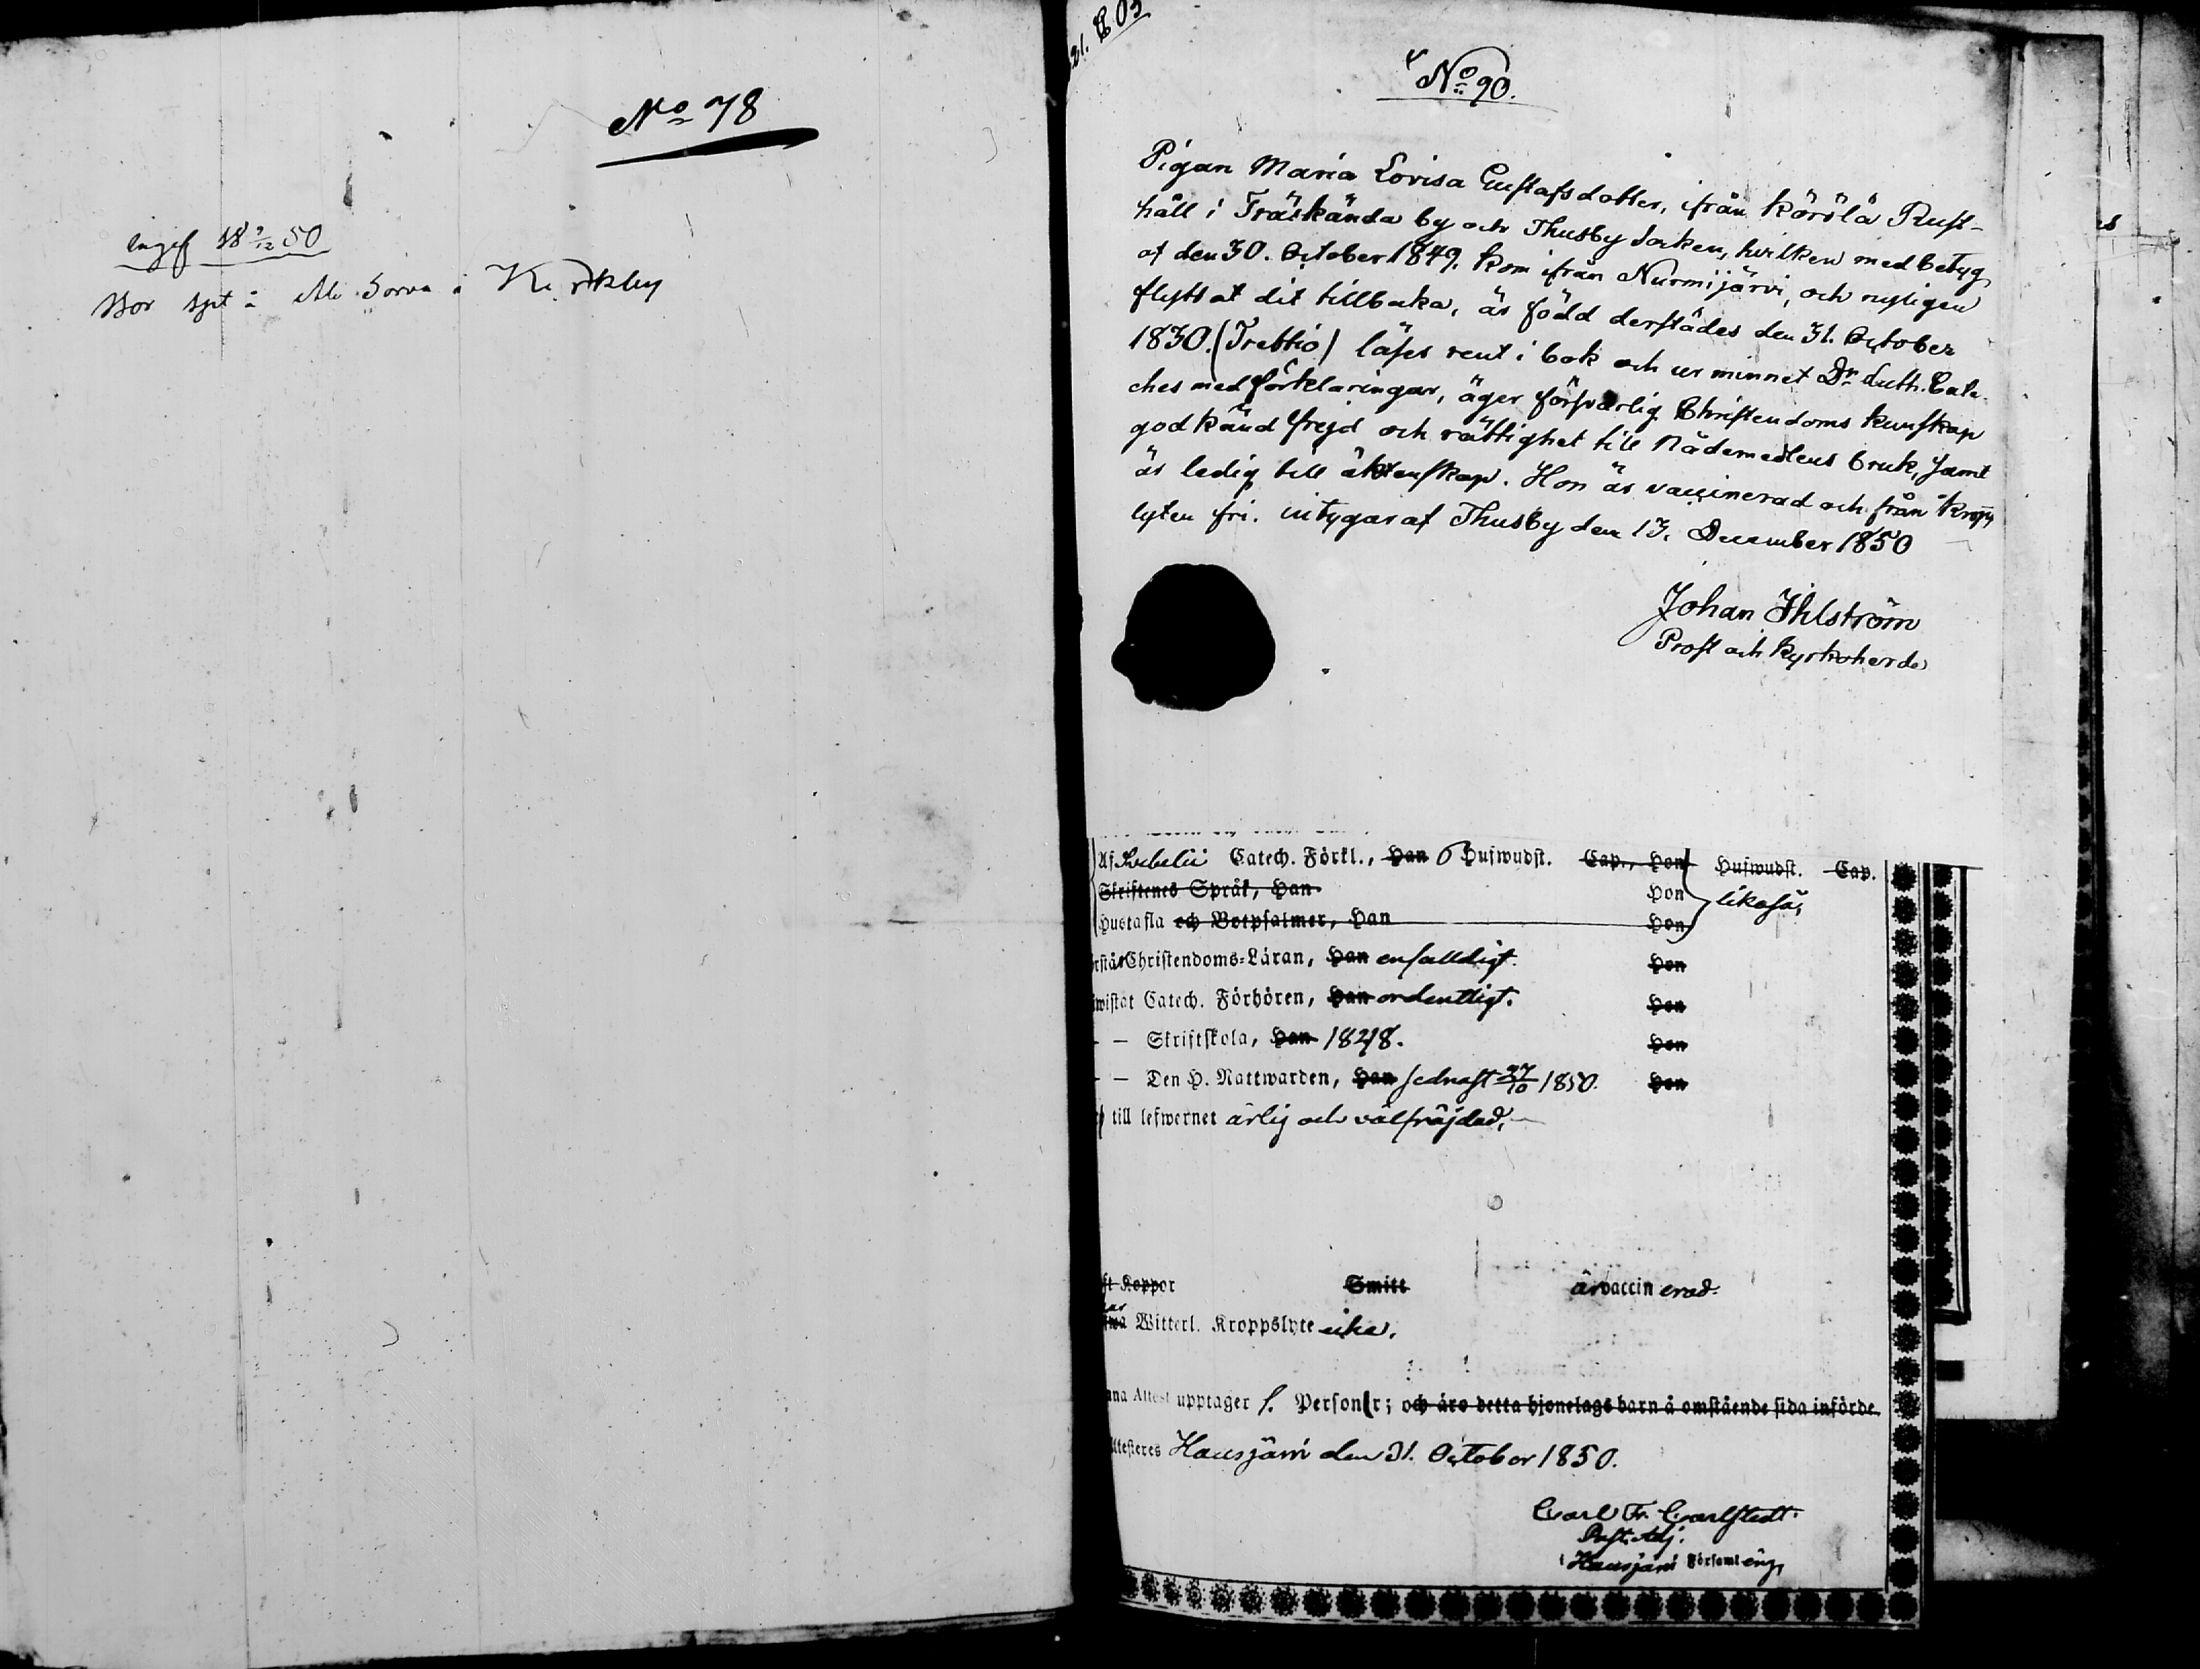 No 78
ingef 18 9/12 50
Bor
No 90.
Pigan Maria Lovisa Gustafsdotter, ifrån Körölä Rust-
håll i Träskända by och Thusby Socken, hvilken med betyg
af den 30. October 1849. kom ifrån Nurmijärvi, och nyligen
flyttat dit tillbaka, är född derstädes den 31. October
1830. (Trettio) läser rent i bok och ur minnet Dr Luth. Cate-
ches med förklaringar, äger försvarlig Christendoms kunskap
godkänd frejd och rättighet till Nådemedlens bruk, samt
är ledig till äktenskap. Hon är vaccinerad och från kropps
lyten fri. intygar af Thusby den 13. December 1850
Johan Ihlström
Prost och Kyrkoherde
Af Svebelii Catech. Förkl., Han 6 Hufwudst. Cap., Hon Hufwudst. Cap.
Skriftenes Språk, Han Hon likaså,
Hustafla och Botpsalmer, Han Hon
rstår Christendoms-Läran, Han enfalldigt. Hon
wistat Catech. Förhören, Han ordentligt. Hon
— Skriftskola, Han 1848. Hon
— Den H. Nattwarden, Han sednast 27/10 1850. Hon
till lefwernet ärlig och välfräjdad,
ft Koppor Smitt är vaccin erad.
Witterl. Kroppslyte icke.
nna Attest upptager 1. Person r; och äro detta hjonelags barn å omstående sida införde.
ttesteres Hausjärvi den 31. October 1850.
Carl Fr. Carlstedt.
Past. Adj.
i Hausjärvi Församl ing